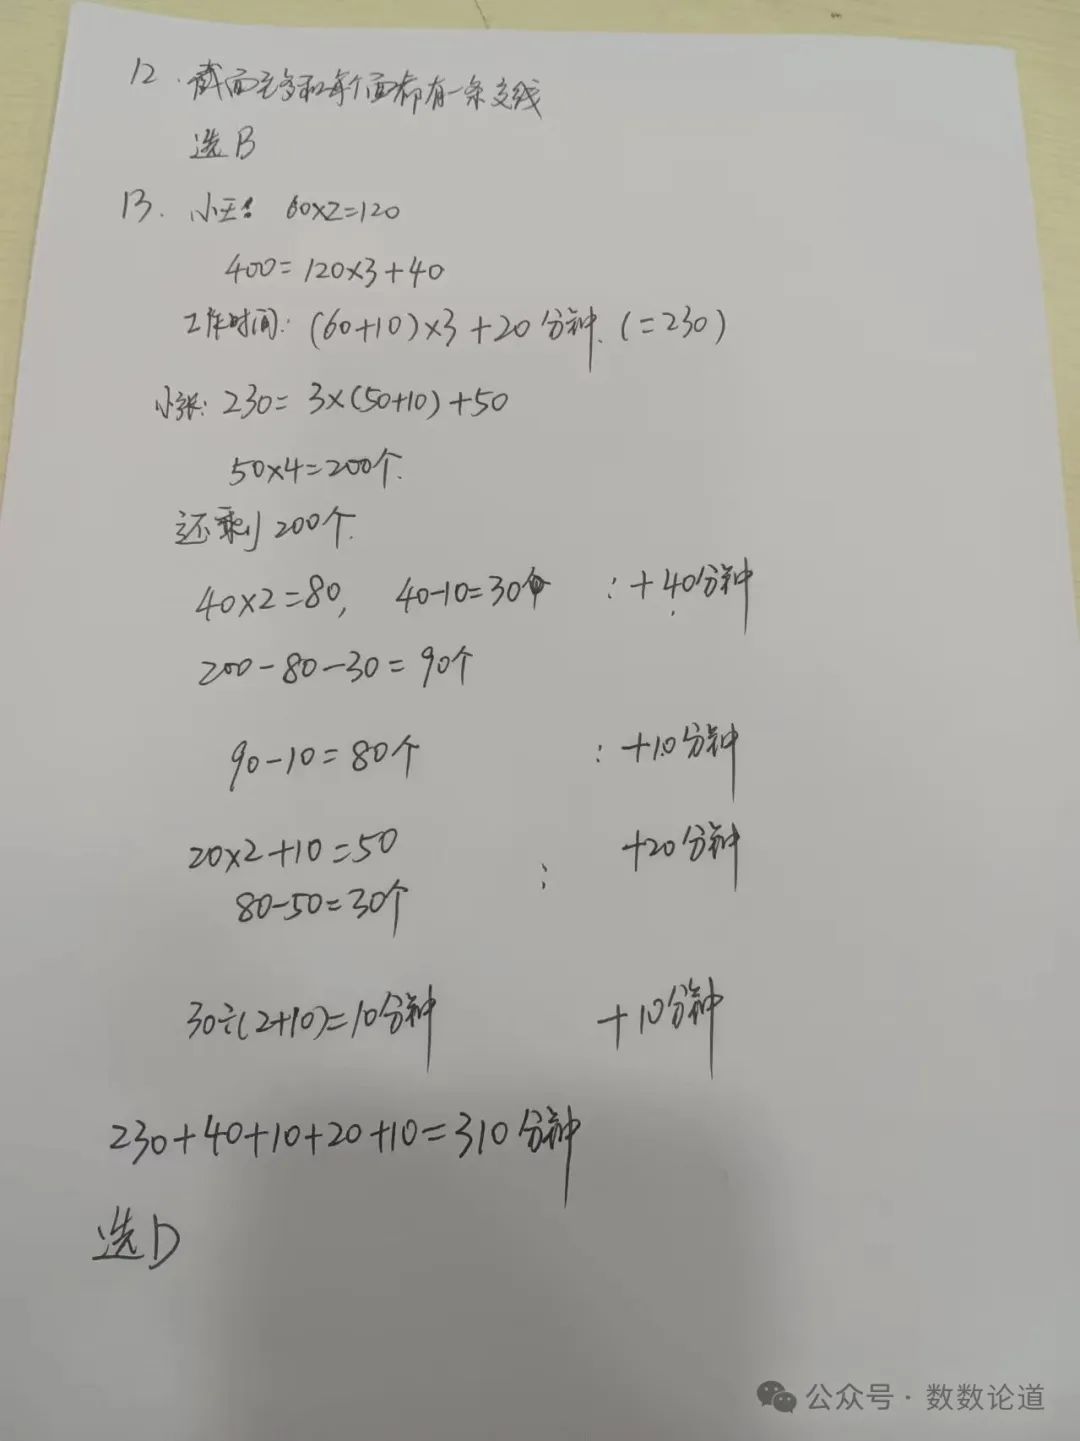 12. 截面至多和每个面都有一条交线
选B
13. 小王: 60×2=120
400=120×3+40
工作时间: (60+10)×3+20分钟. (=230)
小张: 230=3×(50+10)+50
50×4=200个.
还剩200个.
40×2=80, 40-10=30个 : +40分钟
200-80-30=90个
90-10=80个 : +10分钟
20×2+10=50 : +20分钟
80-50=30个
30÷(2+10)=10分钟 +10分钟
230+40+10+20+10=310分钟
选D
公众号·数数论道